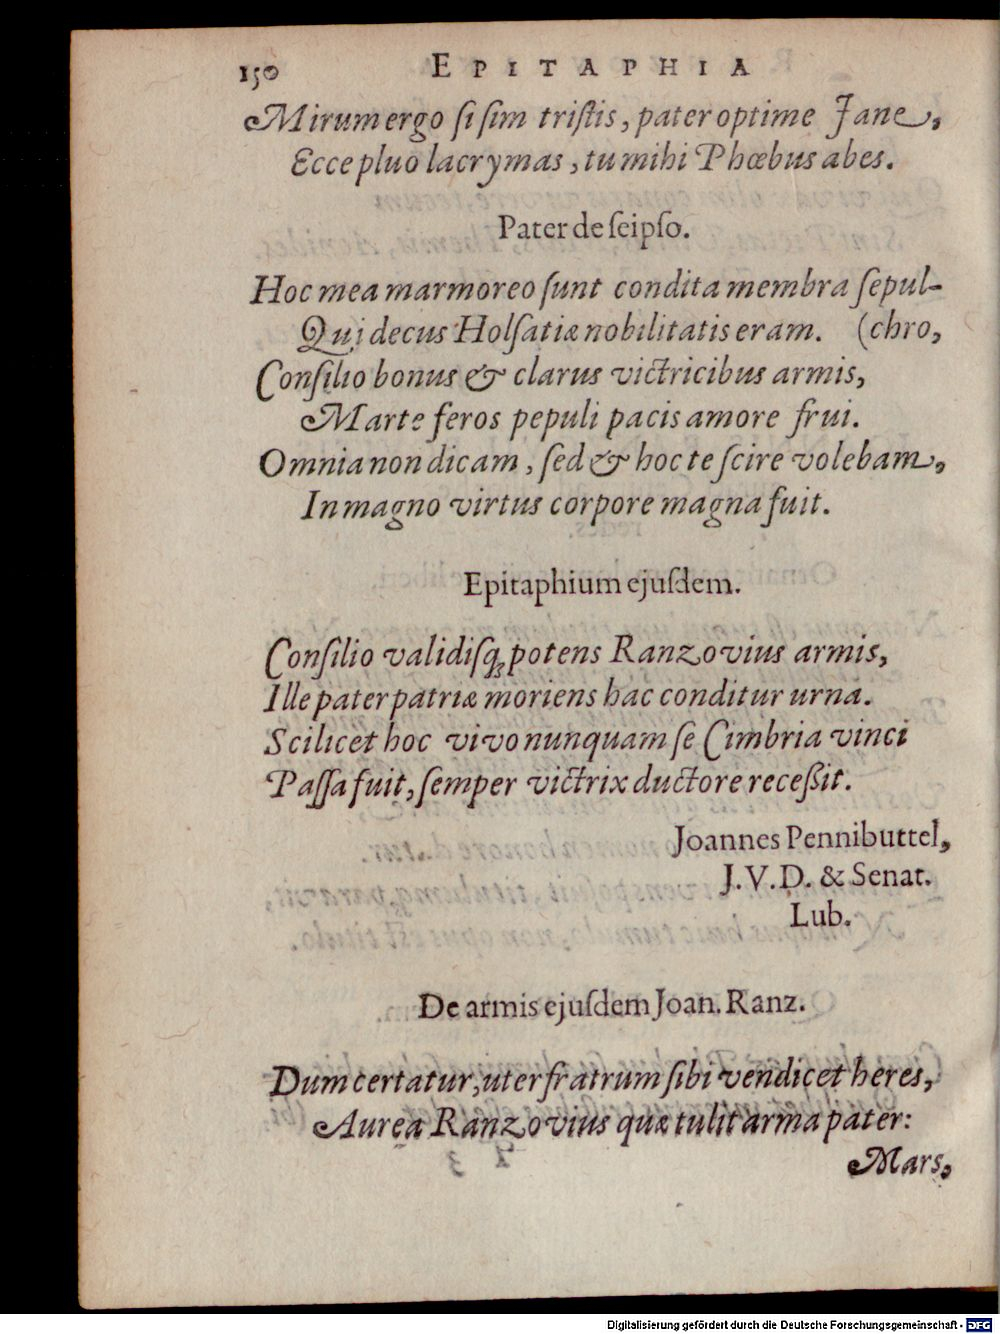 150 EPITAPHIA
Mirum ergo ſi ſim triſtis, pater optime Jane,
Ecce pluo lacrymas, tu mihi Phœbus abes.
Pater de ſeipſo.
Hoc mea marmoreo ſunt condita membra ſepul-
Qui decus Holſatiæ nobilitatis eram. (chro,
Conſilio bonus & clarus victricibus armis,
Marte feros pepuli pacis amore frui.
Omnia non dicam, ſed & hoc te ſcire volebam,
In magno virtus corpore magna fuit.
Epitaphium ejuſdem.
Conſilio validiſq; potens Ranzovius armis,
Ille pater patriæ moriens hac conditur urna.
Scilicet hoc vivo nunquam ſe Cimbria vinci
Paſſa fuit, ſemper victrix ductore receßit.
Joannes Pennibuttel,
J.V.D. & Senat.
Lub.
De armis ejuſdem Joan. Ranz.
Dum certatur, uter fratrum ſibi vendicet heres,
Aurea Ranzovius quæ tulit arma pater:
Mars,
Digitalisierung gefördert durch die Deutsche Forschungsgemeinschaft - DFG